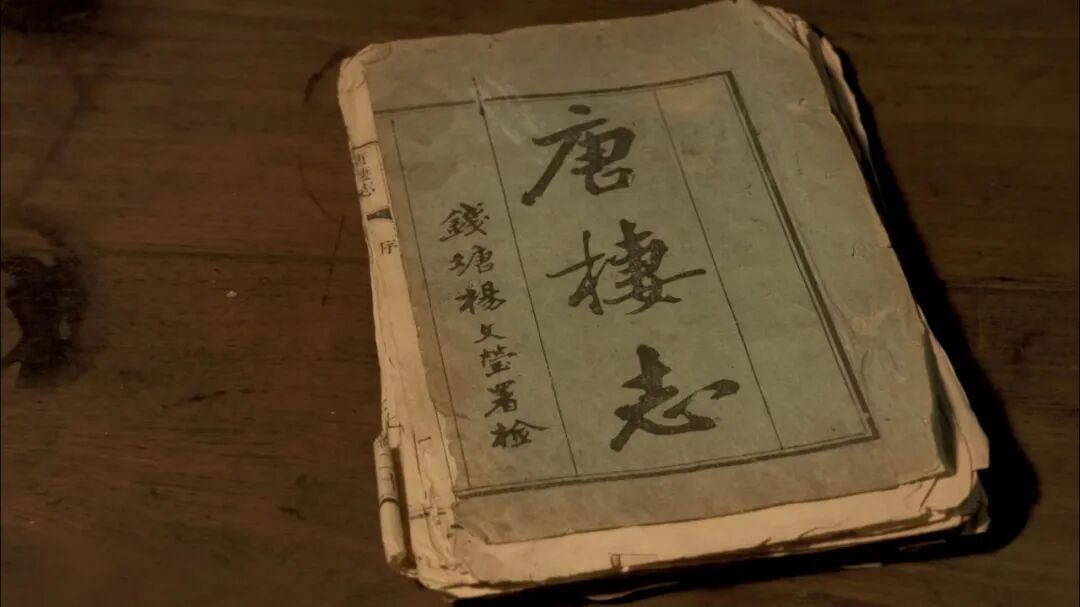 唐棲志
錢塘楊文瑩署檢
唐棲志
序